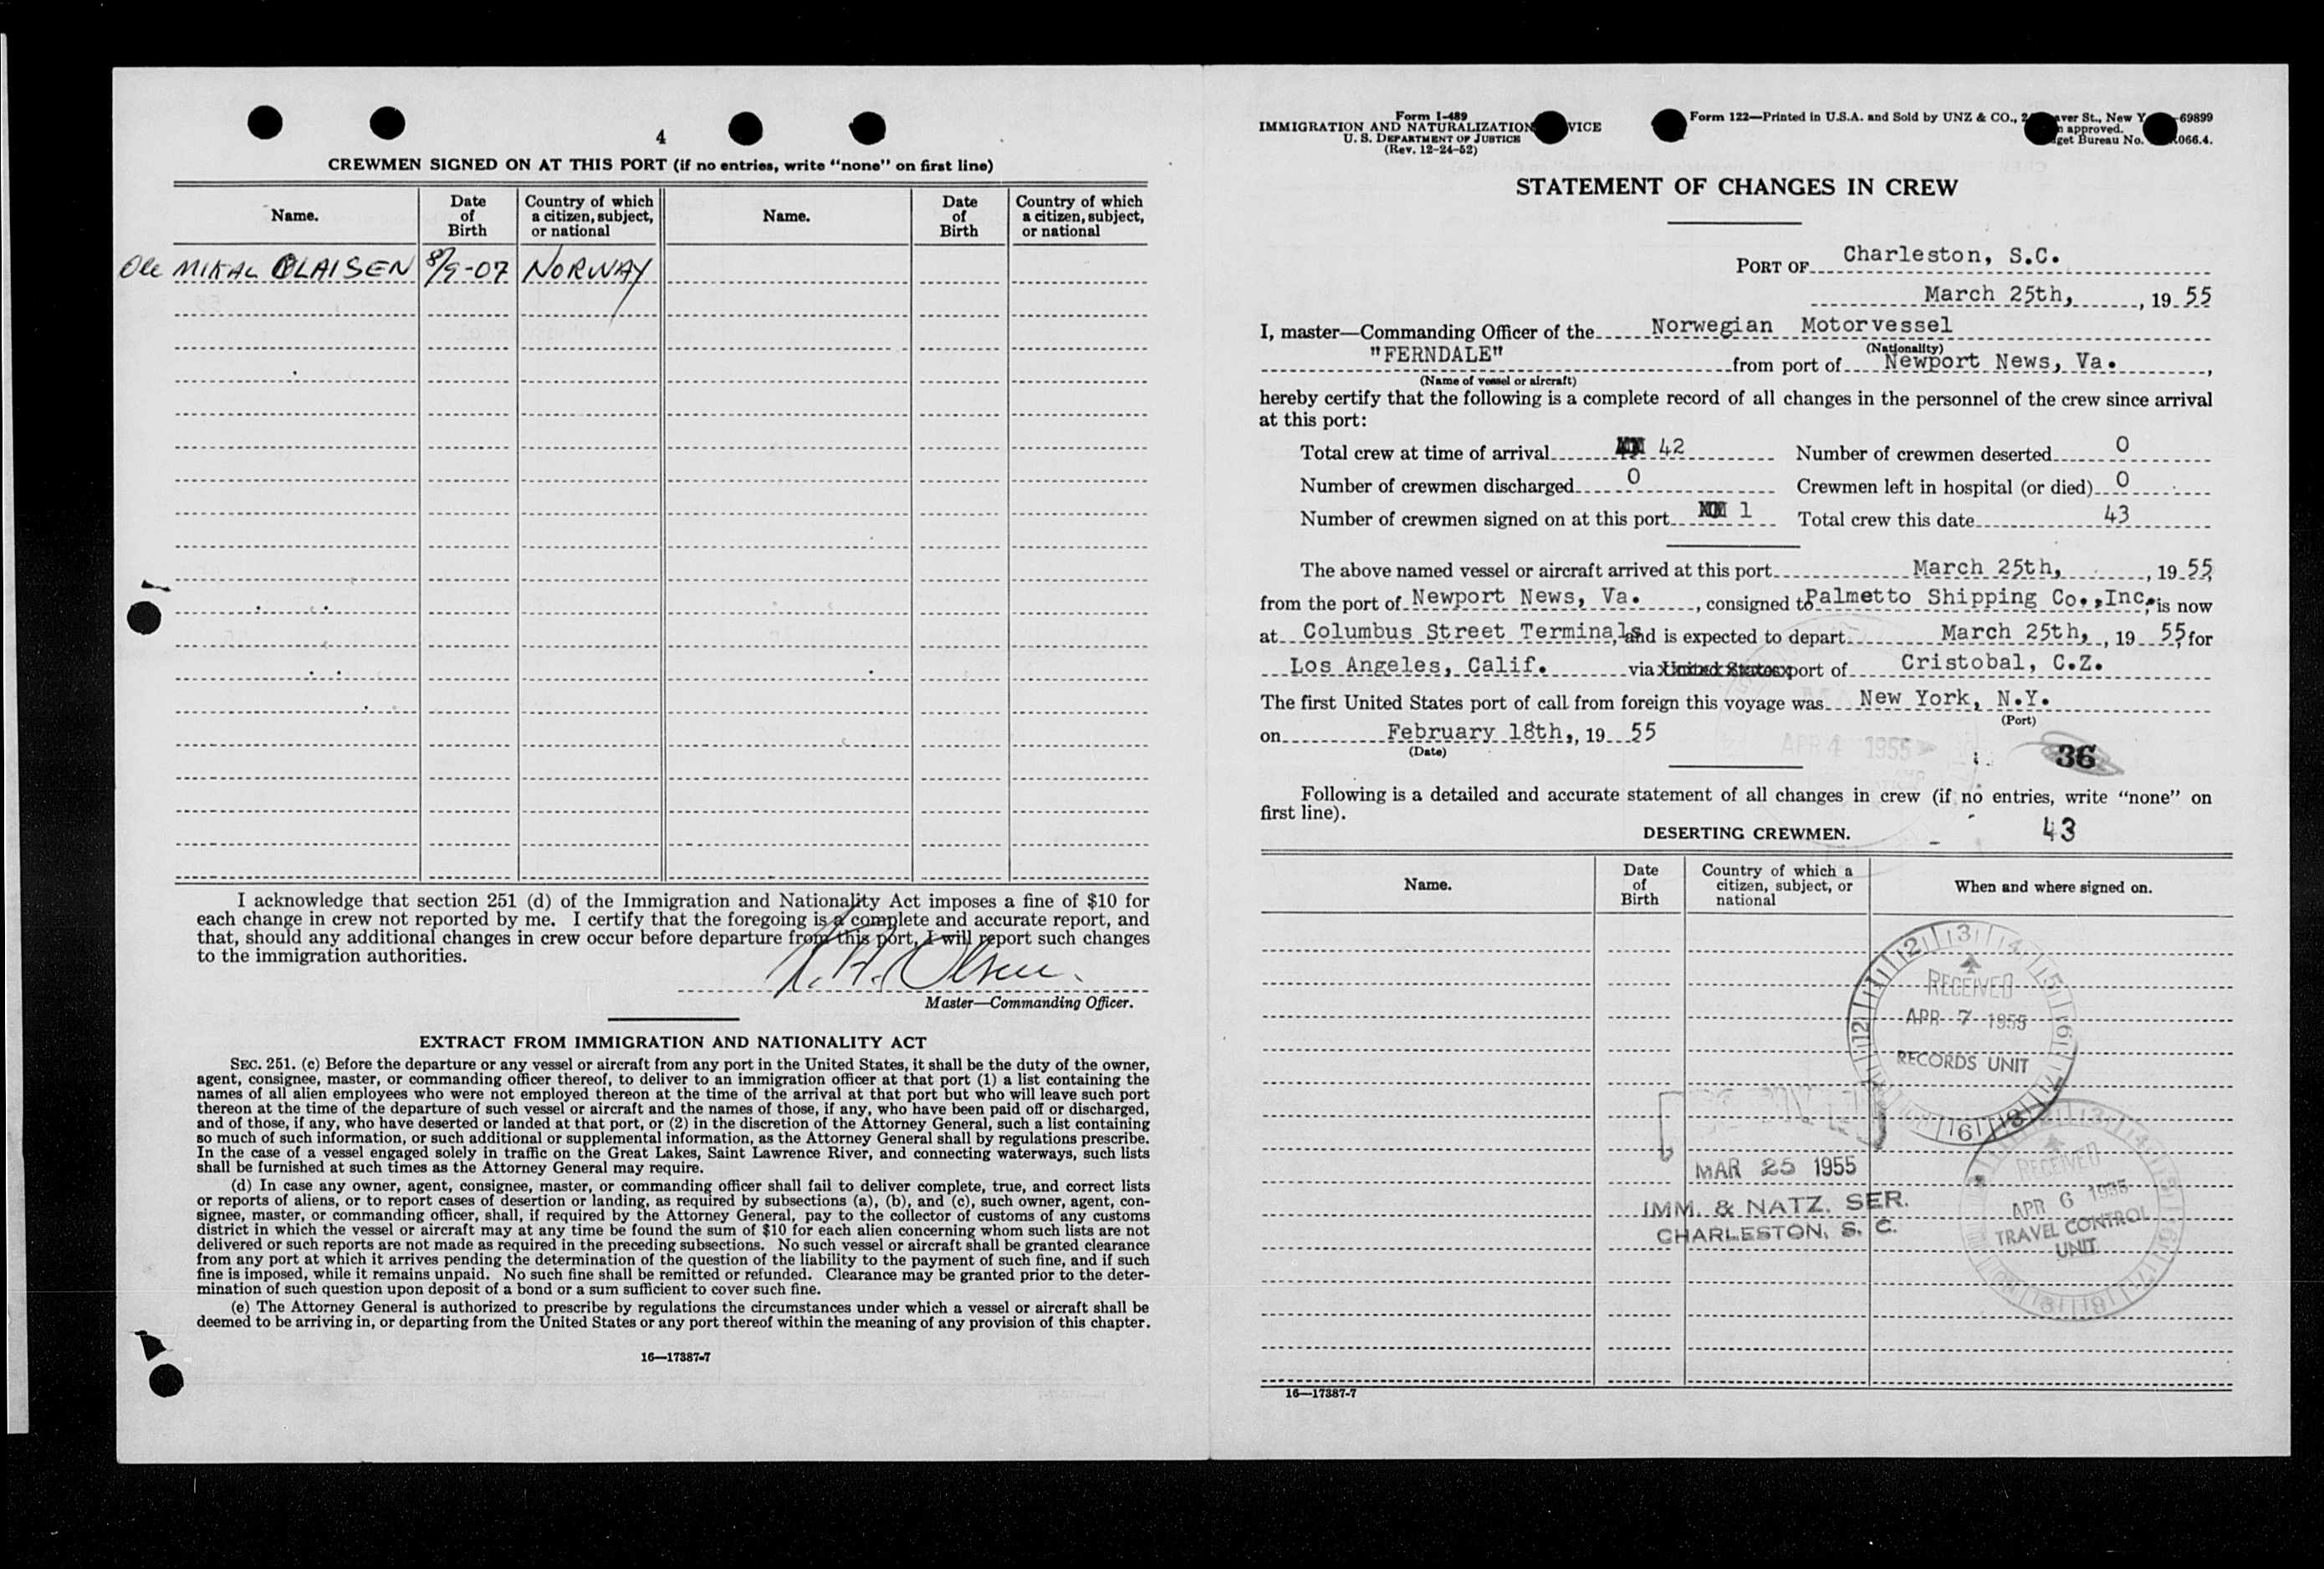 4
CREWMEN SIGNED ON AT THIS PORT (if no entries, write “none” on first line)
Name.
Date of Birth
Country of which a citizen, subject, or national
Name.
Date of Birth
Country of which a citizen, subject, or national
Ole MIKAL OLAISEN 8/9-07 NORWAY
I acknowledge that section 251 (d) of the Immigration and Nationality Act imposes a fine of $10 for
each change in crew not reported by me. I certify that the foregoing is a complete and accurate report, and
that, should any additional changes in crew occur before departure from this port, I will report such changes
to the immigration authorities.
Olsen.
Master—Commanding Officer.
EXTRACT FROM IMMIGRATION AND NATIONALITY ACT
SEC. 251. (c) Before the departure or any vessel or aircraft from any port in the United States, it shall be the duty of the owner,
agent, consignee, master, or commanding officer thereof, to deliver to an immigration officer at that port (1) a list containing the
names of all alien employees who were not employed thereon at the time of the arrival at that port but who will leave such port
thereon at the time of the departure of such vessel or aircraft and the names of those, if any, who have been paid off or discharged,
and of those, if any, who have deserted or landed at that port, or (2) in the discretion of the Attorney General, such a list containing
so much of such information, or such additional or supplemental information, as the Attorney General shall by regulations prescribe.
In the case of a vessel engaged solely in traffic on the Great Lakes, Saint Lawrence River, and connecting waterways, such lists
shall be furnished at such times as the Attorney General may require.
(d) In case any owner, agent, consignee, master, or commanding officer shall fail to deliver complete, true, and correct lists
or reports of aliens, or to report cases of desertion or landing, as required by subsections (a), (b), and (c), such owner, agent, con-
signee, master, or commanding officer, shall, if required by the Attorney General, pay to the collector of customs of any customs
district in which the vessel or aircraft may at any time be found the sum of $10 for each alien concerning whom such lists are not
delivered or such reports are not made as required in the preceding subsections. No such vessel or aircraft shall be granted clearance
from any port at which it arrives pending the determination of the question of the liability to the payment of such fine, and if such
fine is imposed, while it remains unpaid. No such fine shall be remitted or refunded. Clearance may be granted prior to the deter-
mination of such question upon deposit of a bond or a sum sufficient to cover such fine.
(e) The Attorney General is authorized to prescribe by regulations the circumstances under which a vessel or aircraft shall be
deemed to be arriving in, or departing from the United States or any port thereof within the meaning of any provision of this chapter.
16—17387-7
Form I-489
IMMIGRATION AND NATURALIZATION VICE
U. S. DEPARTMENT OF JUSTICE
(Rev. 12-24-52)
Form 122—Printed in U.S.A. and Sold by UNZ & CO., 2 aver St., New Y -69899
approved.
get Bureau No. 066.4.
STATEMENT OF CHANGES IN CREW
PORT OF Charleston, S.C.
March 25th, , 19 55
I, master—Commanding Officer of the Norwegian Motorvessel
(Nationality)
"FERNDALE" from port of Newport News, Va. ,
(Name of vessel or aircraft)
hereby certify that the following is a complete record of all changes in the personnel of the crew since arrival
at this port:
Total crew at time of arrival 42 Number of crewmen deserted 0
Number of crewmen discharged 0 Crewmen left in hospital (or died) 0
Number of crewmen signed on at this port 1 Total crew this date 43
The above named vessel or aircraft arrived at this port March 25th, , 19 55,
from the port of Newport News, Va. , consigned to Palmetto Shipping Co.,Inc., is now
at Columbus Street Terminals and is expected to depart March 25th, , 19 55, for
Los Angeles, Calif. via United States port of Cristobal, C.Z.
The first United States port of call from foreign this voyage was New York, N.Y.
(Port)
on February 18th, , 19 55
(Date)
APR 4 1955
36
Following is a detailed and accurate statement of all changes in crew (if no entries, write “none” on
first line).
43
DESERTING CREWMEN.
Name.
Date of Birth
Country of which a citizen, subject, or national
When and where signed on.
RECEIVED
APR 7 1955
RECORDS UNIT
MAR 25 1955
IMM. & NATZ. SER.
CHARLESTON, S. C.
RECEIVED
APR 6 1955
TRAVEL CONTROL
UNIT
16—17387-7